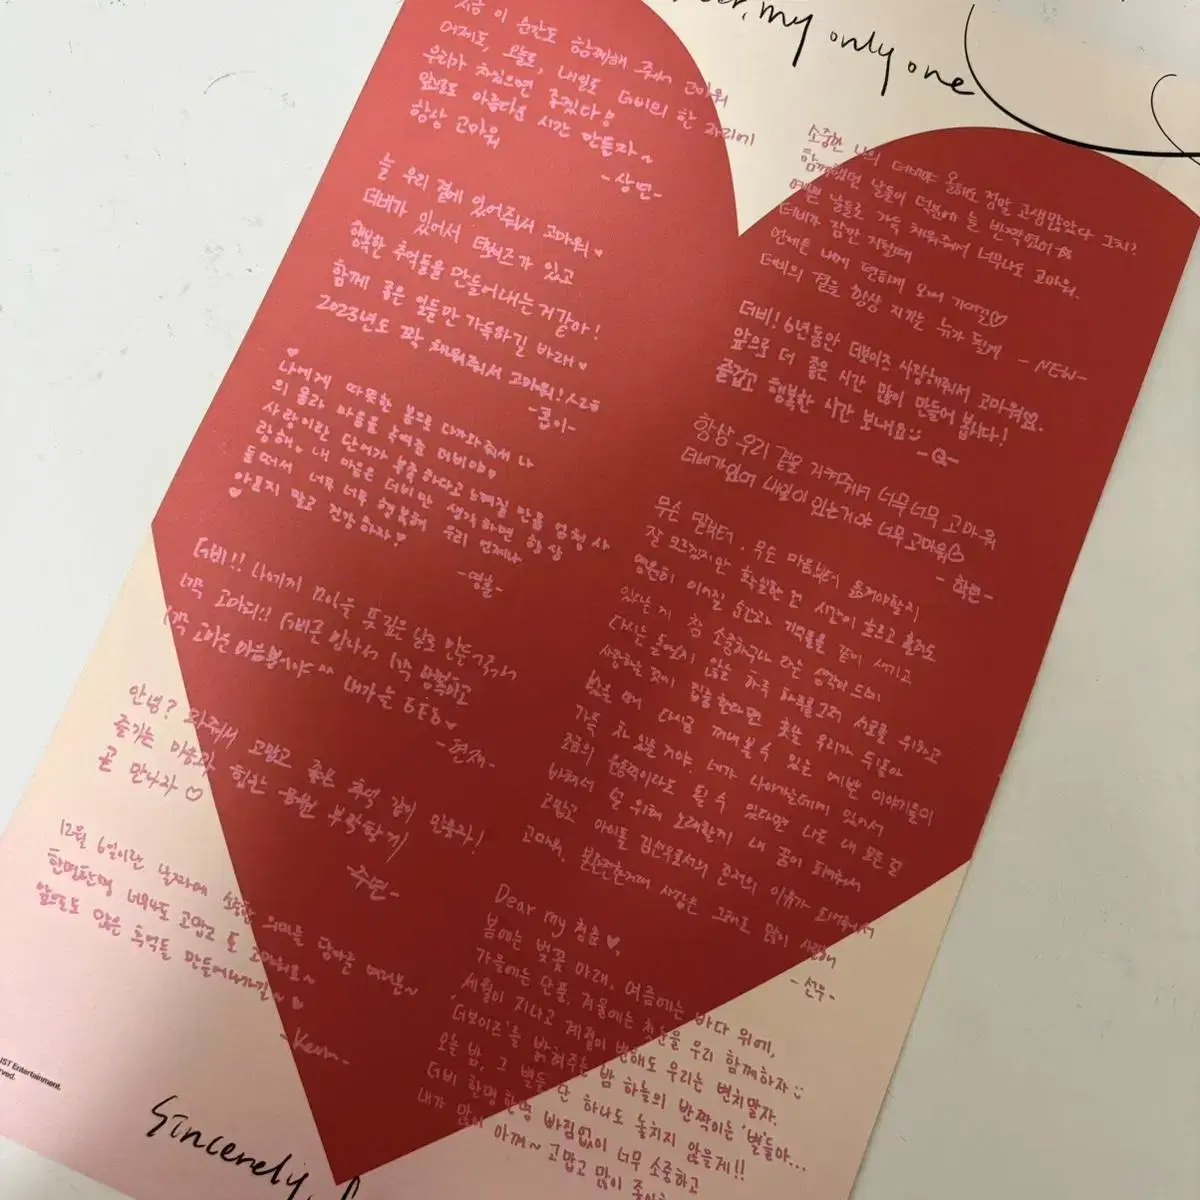 my only one
지금 이 순간도 함께해 줘서 고마워
어제도, 오늘도, 내일도 더비의 한 자리에
우리가 있으면 좋겠다!
앞으로도 아름다운 시간 만들자~
항상 고마워
-상연-
늘 우리 곁에 있어줘서 고마워
더비가 있어서 더보이즈가 있고
행복한 추억들을 만들어내는 거같아!
함께 좋은 일들만 가득하길 바래♥
2023년도 꽉 채워줘서 고마워!
나에게 따뜻한 봄으로 다가와줘서 나
의 마음을 녹여준 더비야♥
사랑이란 단어가 부족하다고 느껴질 만큼 엄청 사
랑해. 내 마음은 더비만 생각하면 항상
너무 너무 행복해 우리 언제나
아프지 말고 건강하자!
-영훈-
더비!! 나에게
-현재-
안녕? 와줘서 고맙고 좋은 추억 많이
즐기는 미송과 힘찬 응원 부탁할게
곧 만나자♡
-주연-
12월 6일이란 날짜에 소중한 의미를 담아준 여러분~
한명한명 너무나도 고맙고 또 고마워요~
앞으로도 많은 추억들 만들어나가길~♥
-Kevin-
소중한 나의 더비야 올해도 정말 고생많았다 그치?
함께했던 날들이 덕분에 늘 반짝였어☆
예쁜 날들로 가득 채워줘서 너무나도 고마워.
더비가 잠깐 지칠때
언제든 나에게 편하게 오며 기대길♡
더비의 곁을 항상 지키는 뉴가 될게
-NEW-
더비! 6년동안 더보이즈 사랑해줘서 고마워♡.
앞으로 더 좋은 시간 많이 만들어 봅시다!
즐겁고 행복한 시간 보내요
-Q-
항상 우리 곁을 지켜줘서 너무너무 고마워
더비가있어 내일이 있는거야 너무 고마워♡
-학년-
무슨 말부터, 무슨 마음부터 옮겨야할지
잘 모르겠지만 확실한 건 시간이 흐르고 흘러도
영원히 이어질 순간과 기억들을 같이 새기고
있다는 게 참 소중하구나 라는 생각이 드네
다시는 돌아오지 않는 하루 하루를 그저 서로를 위하고
사랑하는 것에 집중한다면 훗날 우리가 뒤돌아
봤을 때 다시금 꺼내볼 수 있는 예쁜 이야기들이
가득 차 있을 거야. 네가 나아가는데에 있어서
조금의 원동력이라도 될 수 있다면 나도 내 모든 걸
바쳐서 널 위해 노래할게 내 꿈이 되어줘서
고맙고 아이돌 김선우로서의 존재의 이유가 되어줘서
고마워.
-선우-
Dear my 청춘♥,
봄에는 벚꽃 아래, 여름에는 바다 위에,
가을에는 단풍, 겨울에는 첫눈을 우리 함께하자
세월이 지나고 계절이 변해도 우리는 변치말자.
'더보이즈'를 밝혀주는 밤 하늘의 반짝이는 '별'들아...
오늘 밤, 그 별들 단 하나도 놓치지 않을게!!
더비 한명 한명 빠짐없이 너무 소중하고
내가 많이 아껴~ 고맙고 많이
IST Entertainment.
Sincerely,